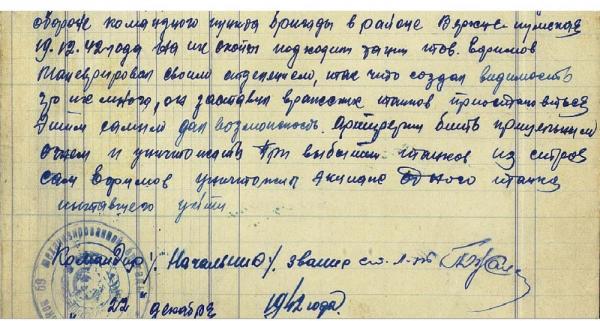 обороне командного пункта бригады в районе Верхне кумская
19.12.42 года на их окопы подходит танки тов. Воримов
маневрировал своим отделением, итак что создал видимость
что их много, он заставил вражеских танков приостоновиться
Этим самым дал возможность. Артилерии бить прицельным
огнем и уничтожать При выбытии танков из строя
сам Воримов уничтожил экипаж одного танка
пытавшего уйти
Командир /. Начальник /. звание ст. л-т
22 декабря 1942 года.
механизированной